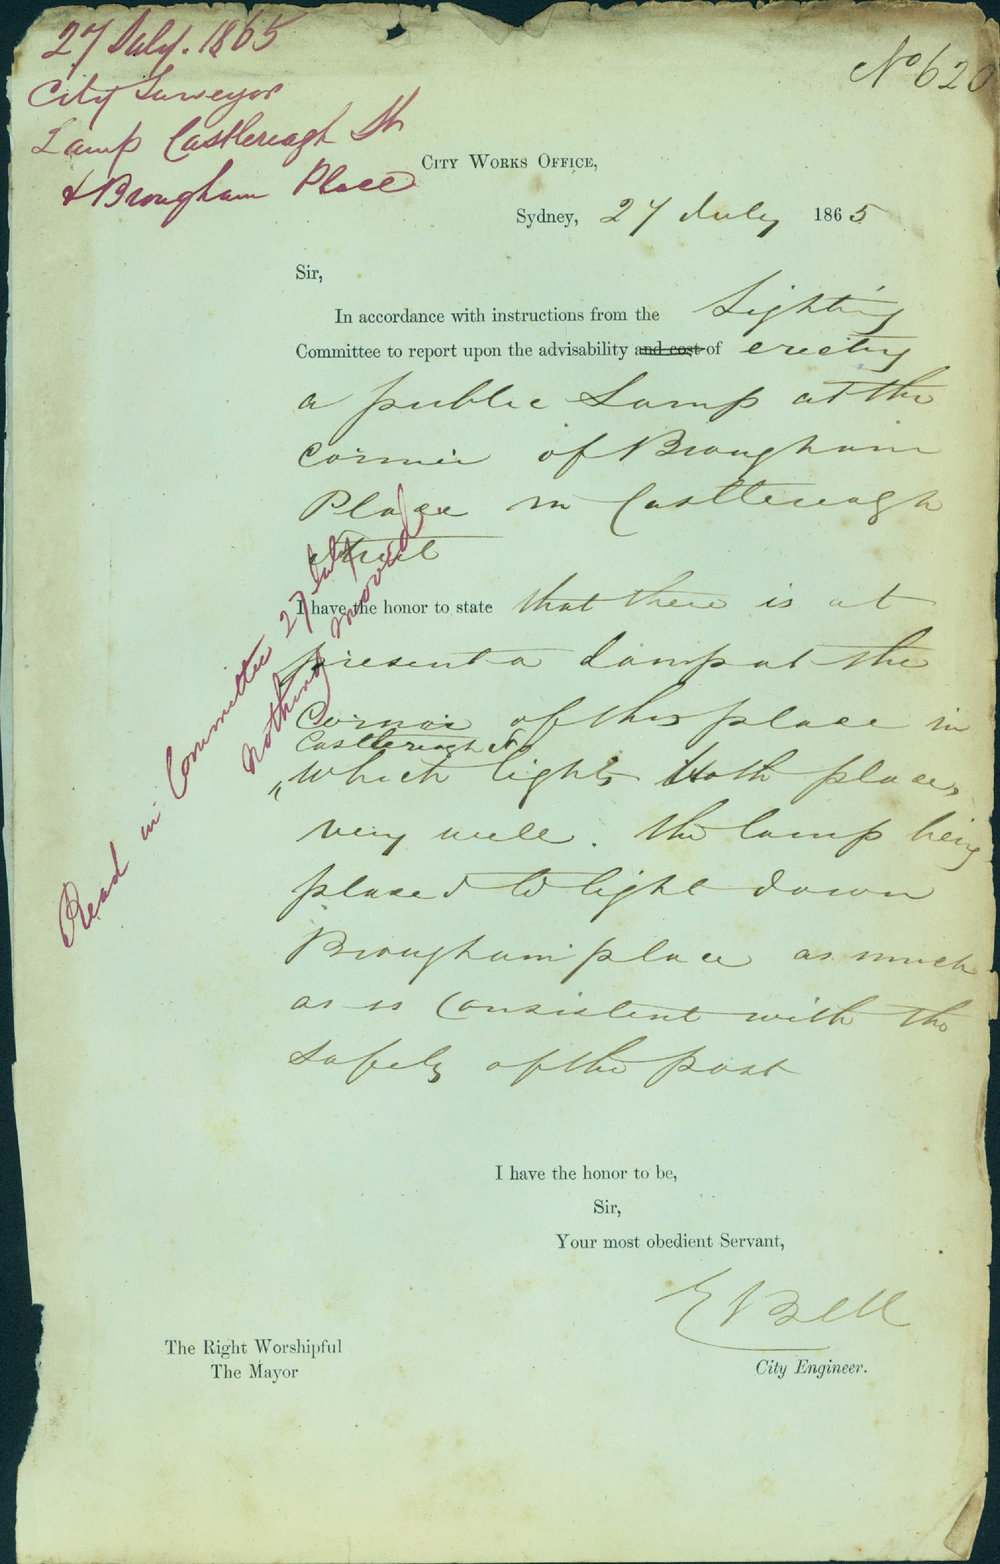 27 July. 1865
City Surveyor
Lamp Castlereagh St
& Brougham Place
No 620
City Works Office,
Sydney, 27 July 1865
Sir,
In accordance with instructions from the Lighting
Committee to report upon the advisability and cost of erecting
a public Lamp at the
corner of Brougham
Place in Castlereagh
Street
I have the honor to state that there is at
present a Lamp at the
Corner of this place in
Castlereagh St
which lights both places
very well. the lamp being
placed to light down
Brougham place as much
as is consistent with the
safety of the post
Read in Committee 27 July
Nothing moved
I have the honor to be,
Sir,
Your most obedient Servant,
E Bell
City Engineer.
The Right Worshipful
The Mayor